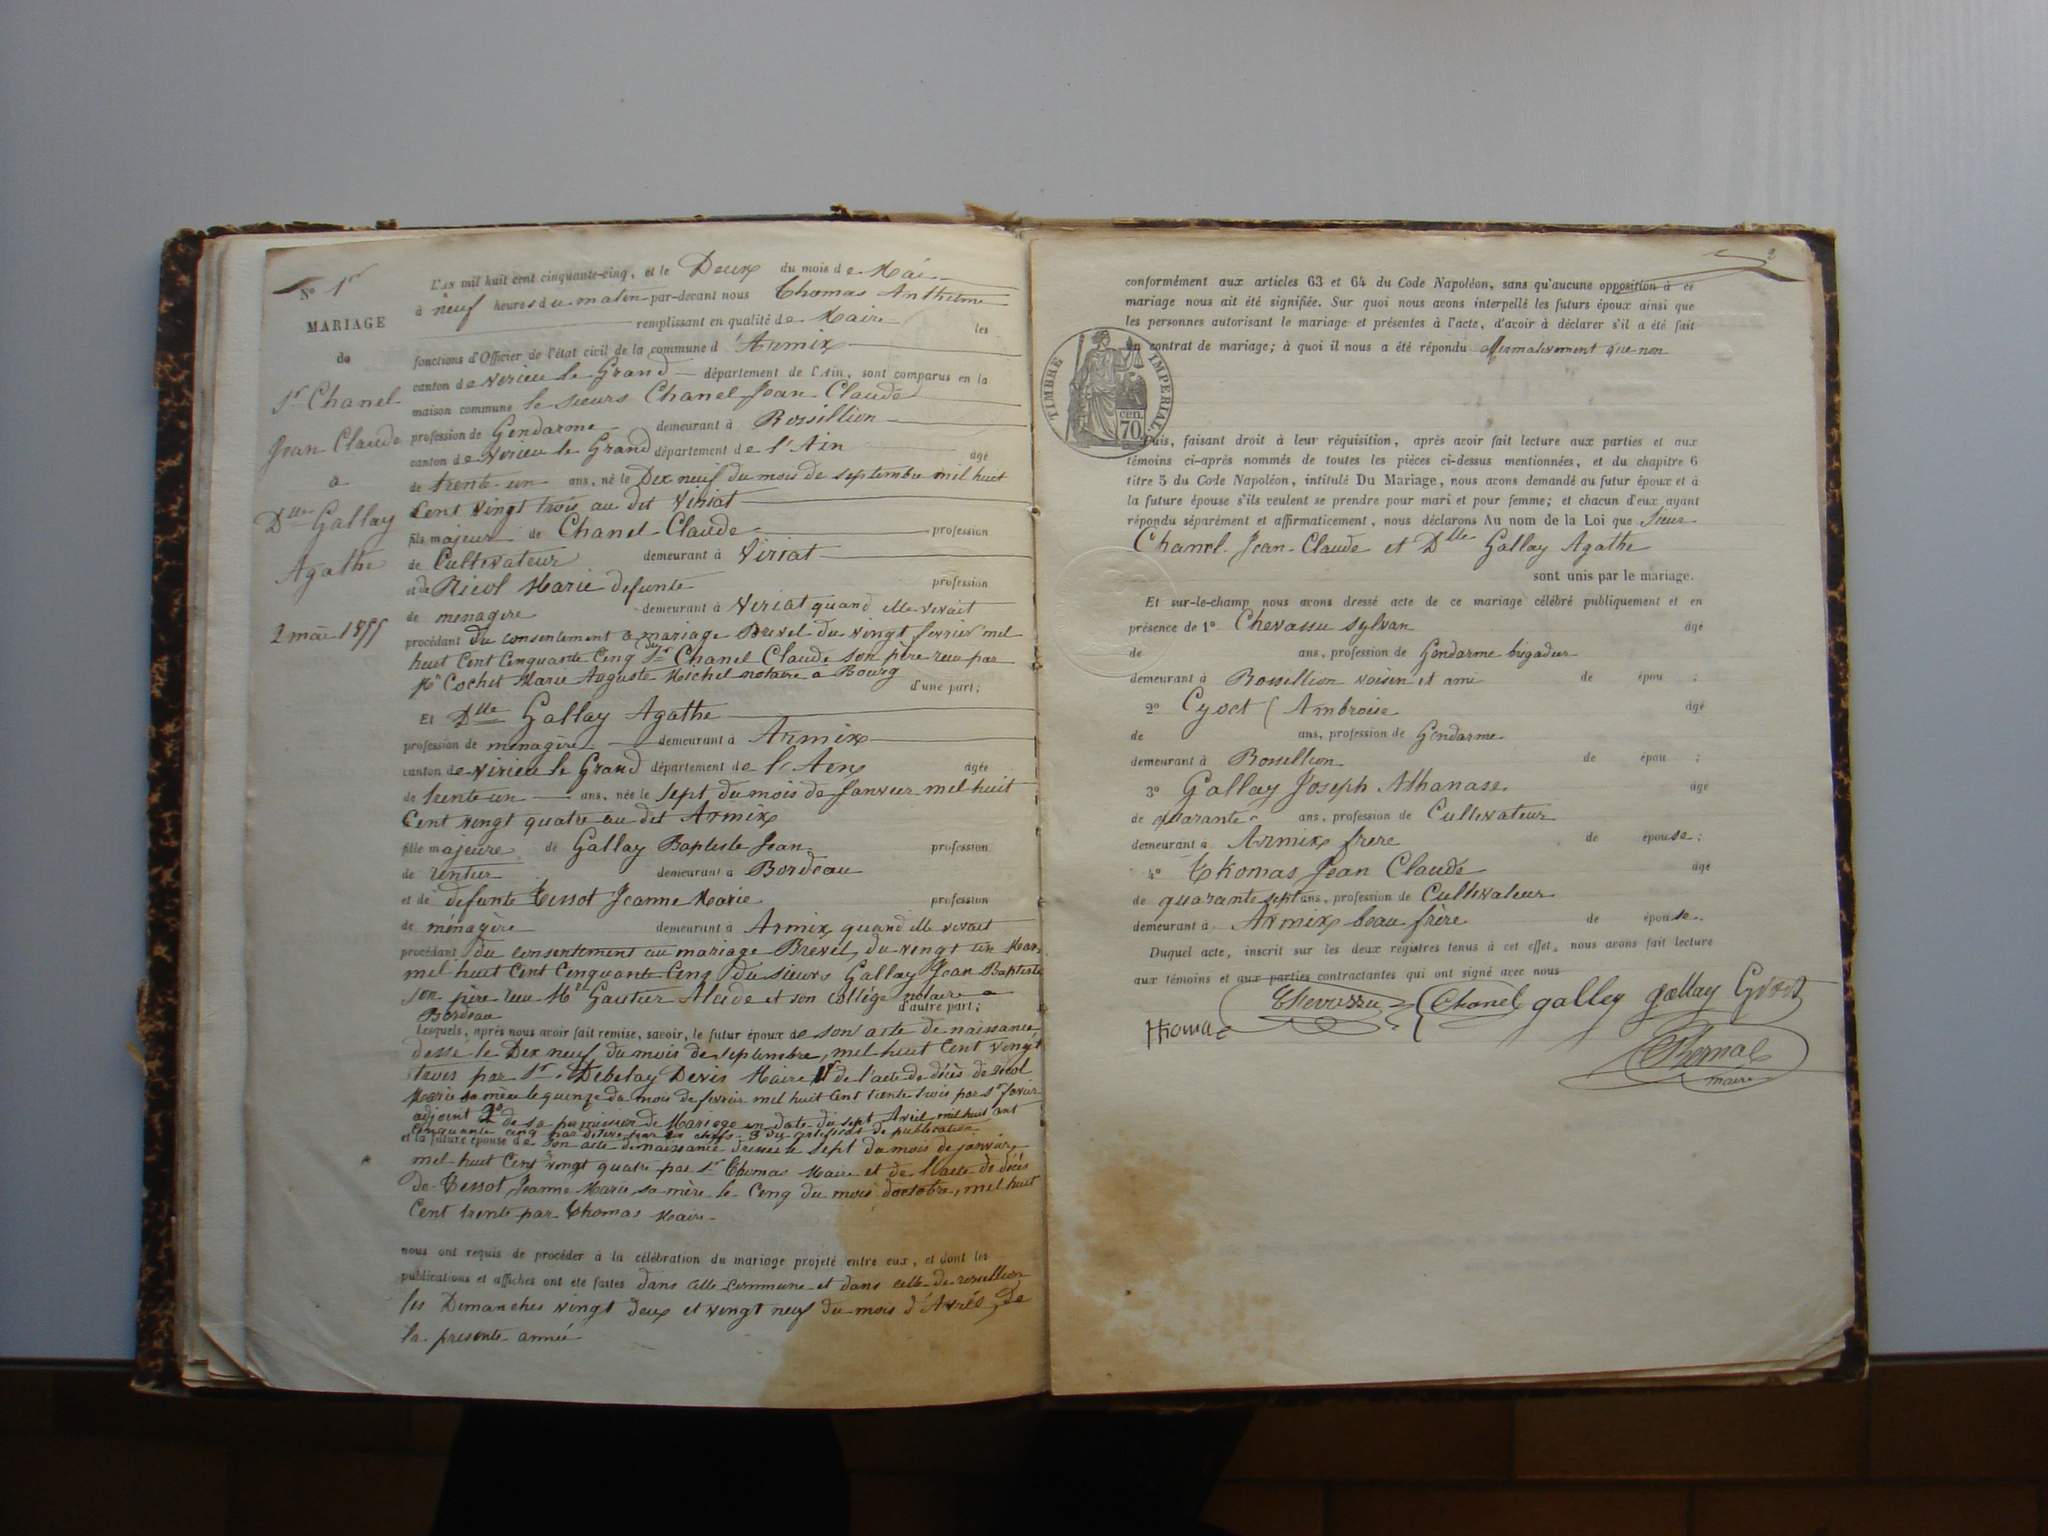 N° 1er
MARIAGE
de
Sr Chanel
Jean Claude
a
Dlle Gallay
Agathe
2 mai 1855
L'an mil huit cent cinquante-cinq, et le Deux du mois de Mai
à neuf heures du matin par-devant nous Thomas Anthelme
remplissant en qualité de Maire les
fonctions d'Officier de l'état civil de la commune d'Armix
canton de Virieu le Grand département de l'Ain, sont comparus en la
maison commune le sieurs Chanel Jean Claude
profession de Gendarme demeurant à Rossillion
canton de Virieu le Grand département de l'Ain âgé
de trente-un ans, né le Dix neuf du mois de septembre mil huit
Cent vingt trois au dit Viriat
fils majeur de Chanel Claude profession
de Cultivateur demeurant à Viriat
et de Nicol Marie defunte profession
de menagere demeurant à Viriat quand elle vivait
procédant du consentement a mariage Brevet du vingt fevrier mil
huit Cent Cinquante Cinq du Sr Chanel Claude son père reçu par
Me Cochet Marie Auguste Michel notaire a Bourg
d'une part;
Et Dlle Gallay Agathe
profession de menagère demeurant à Armix
canton de Virieu le Grand département de l'Ain âgée
de trente un ans, née le sept du mois de Janvier mil huit
Cent vingt quatre au dit Armix
fille majeure de Gallay Baptiste Jean profession
de rentier demeurant à Bordeau
et de defunte Tessot Jeanne Marie profession
de ménagère demeurant à Armix quand elle vivait
procédant du consentement au mariage Brevet, du vingt un Mars
mil huit Cent Cinquante Cinq du sieurs Gallay Jean Baptiste
son père reçu Me Gautier Alcide et son collége notaire a
Bordeau d'autre part;
Lesquels, après nous avoir fait remise, savoir, le futur époux de son acte de naissance
dessé le Dix neuf du mois de septembre, mil huit Cent vingt
trois par Sr Debelay Denis Maire de l'acte de décès de Nicol
Marie sa mère le quinze du mois de fevrier mil huit Cent trente trois par Sr
adjoint 2° de sa permission de Mariage en date du sept Avril mil huit cent
cinquante cinq 3 des certificats de publication
et la future épouse de son acte de naissance dressé le sept du mois de janvier
mil huit Cent vingt quatre par Sr Thomas Maire et de l'acte de décès
de Tessot Jeanne Marie sa mère le Cinq du mois d'octobre, mil huit
Cent trente par Thomas Maire
nous ont requis de procéder à la célébration du mariage projeté entre eux, et dont les
publications et affiches ont été faites dans cette commune et dans celle de rossillion
les Dimanches vingt deux et vingt neuf du mois d'Avril de
la presente année
2
conformément aux articles 63 et 64 du Code Napoléon, sans qu'aucune opposition à ce
mariage nous ait été signifiée. Sur quoi nous avons interpellé les futurs époux ainsi que
les personnes autorisant le mariage et présentes à l'acte, d'avoir à déclarer s'il a été fait
un contrat de mariage; à quoi il nous a été répondu affirmativement que non
TIMBRE IMPERIAL
70 cen.
Puis, faisant droit à leur réquisition, après avoir fait lecture aux parties et aux
témoins ci-après nommés de toutes les pièces ci-dessus mentionnées, et du chapitre 6
titre 5 du Code Napoléon, intitulé Du Mariage, nous avons demandé au futur époux et à
la future épouse s'ils veulent se prendre pour mari et pour femme; et chacun d'eux ayant
répondu séparément et affirmativement, nous déclarons Au nom de la Loi que Sieur
Chanel Jean-Claude et Dlle Gallay Agathe
sont unis par le mariage.
Et sur-le-champ nous avons dressé acte de ce mariage célébré publiquement et en
présence de 1° Chevassu Sylvan âgé
de ans, profession de Gendarme brigadier
demeurant à Rossillion voisin et ami de épou ;
2° Cyoct Ambroise âgé
de ans, profession de Gendarme
demeurant à Rossillion de épou ;
3° Gallay Joseph Athanase âgé
de quarante ans, profession de Cultivateur
demeurant à Armix frère de épouse;
4° Thomas Jean Claude âgé
de quarante sept ans, profession de Cultivateur
demeurant à Armix beau frère de épouse.
Duquel acte, inscrit sur les deux registres tenus à cet effet, nous avons fait lecture
aux témoins et aux parties contractantes qui ont signé avec nous
Chevassu Chanel gallay gallay
Thomas
maire